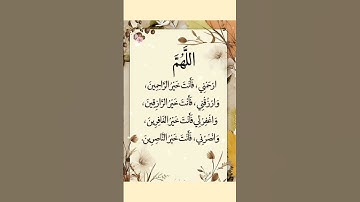 اللَّهُمَّ
ارْحَمْنِي، فَأَنْتَ خَيْرُ الرَّاحِمِينَ،
وَارْزُقْنِي، فَأَنْتَ خَيْرُ الرَّازِقِينَ،
وَاغْفِرْ لِي فَأَنْتَ خَيْرُ الغَافِرِينَ،
وَانْصُرْنِي، فَأَنْتَ خَيْرُ النَّاصِرِينَ.